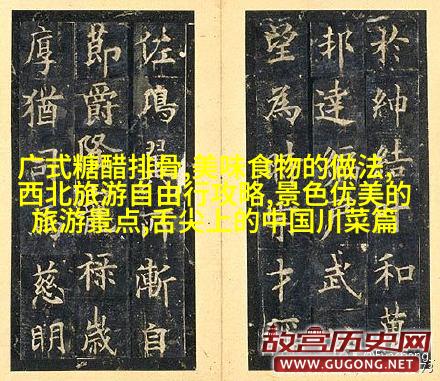 於紳結和黃
邦達武
望為才
佐鳴漸自
節爵祿歲
厚猶慈明
广式糖醋排骨,美味食物的做法,
西北旅游自由行攻略,景色优美的
旅游景点,舌尖上的中国川菜篇
故宫历史网
WWW.GUGONG.NET